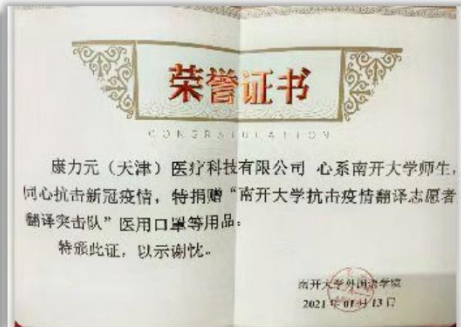 荣誉证书
CONGRATULATION
康力元（天津）医疗科技有限公司 心系南开大学师生，
同心抗击新冠疫情，特捐赠“南开大学抗击疫情翻译志愿者
翻译突击队”医用口罩等用品。
特颁此证，以示谢忱。
南开大学外国语学院
2021年01月13日